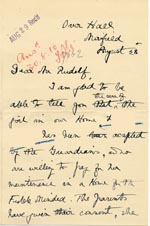 AUG 29 1902
Over Hall
Mayfield
August 28
Dear Mr Rudolf,
I am glad to be
able to tell you that the
girl in our Home
has been accepted
by the Guardians, who
are willing to pay for her
maintenance in a Home for the
Feeble Minded. The parents
have given their consent, she